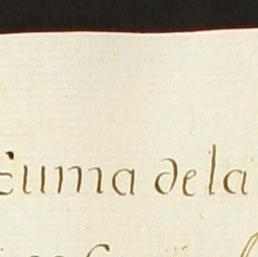 suma dela